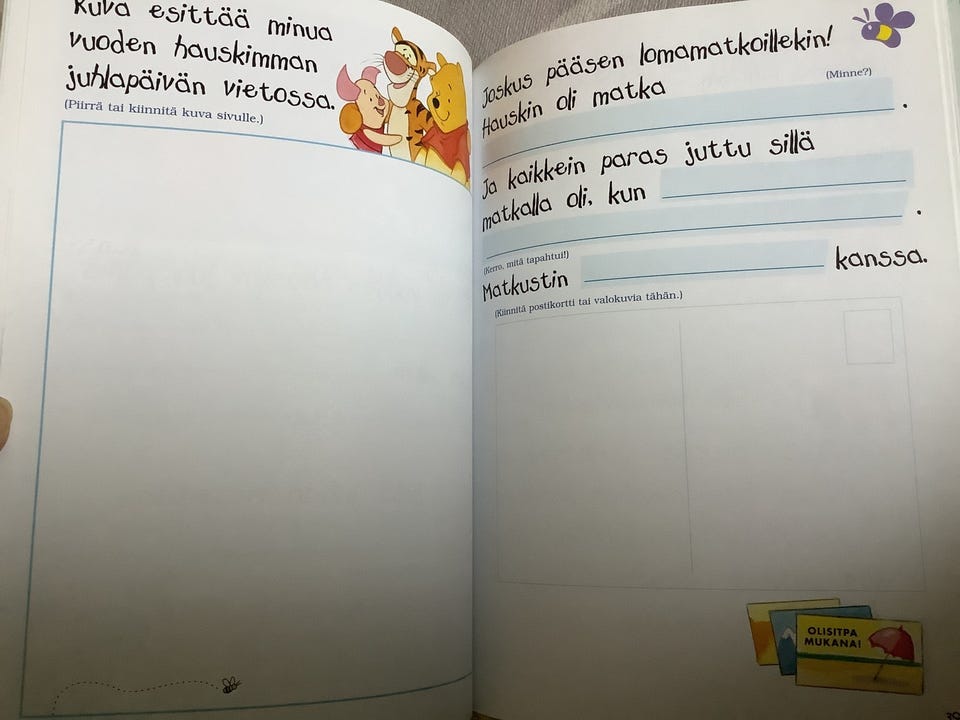 Kuva esittää minua
vuoden hauskimman
juhlapäivän vietossa.
(Piirrä tai kiinnitä kuva sivulle.)
Joskus pääsen lomamatkoillekin!
(Minne?)
Hauskin oli matka .
Ja kaikkein paras juttu sillä
matkalla oli, kun
.
(Kerro, mitä tapahtui!)
Matkustin kanssa.
(Kiinnitä postikortti tai valokuvia tähän.)
OLISITPA
MUKANA!